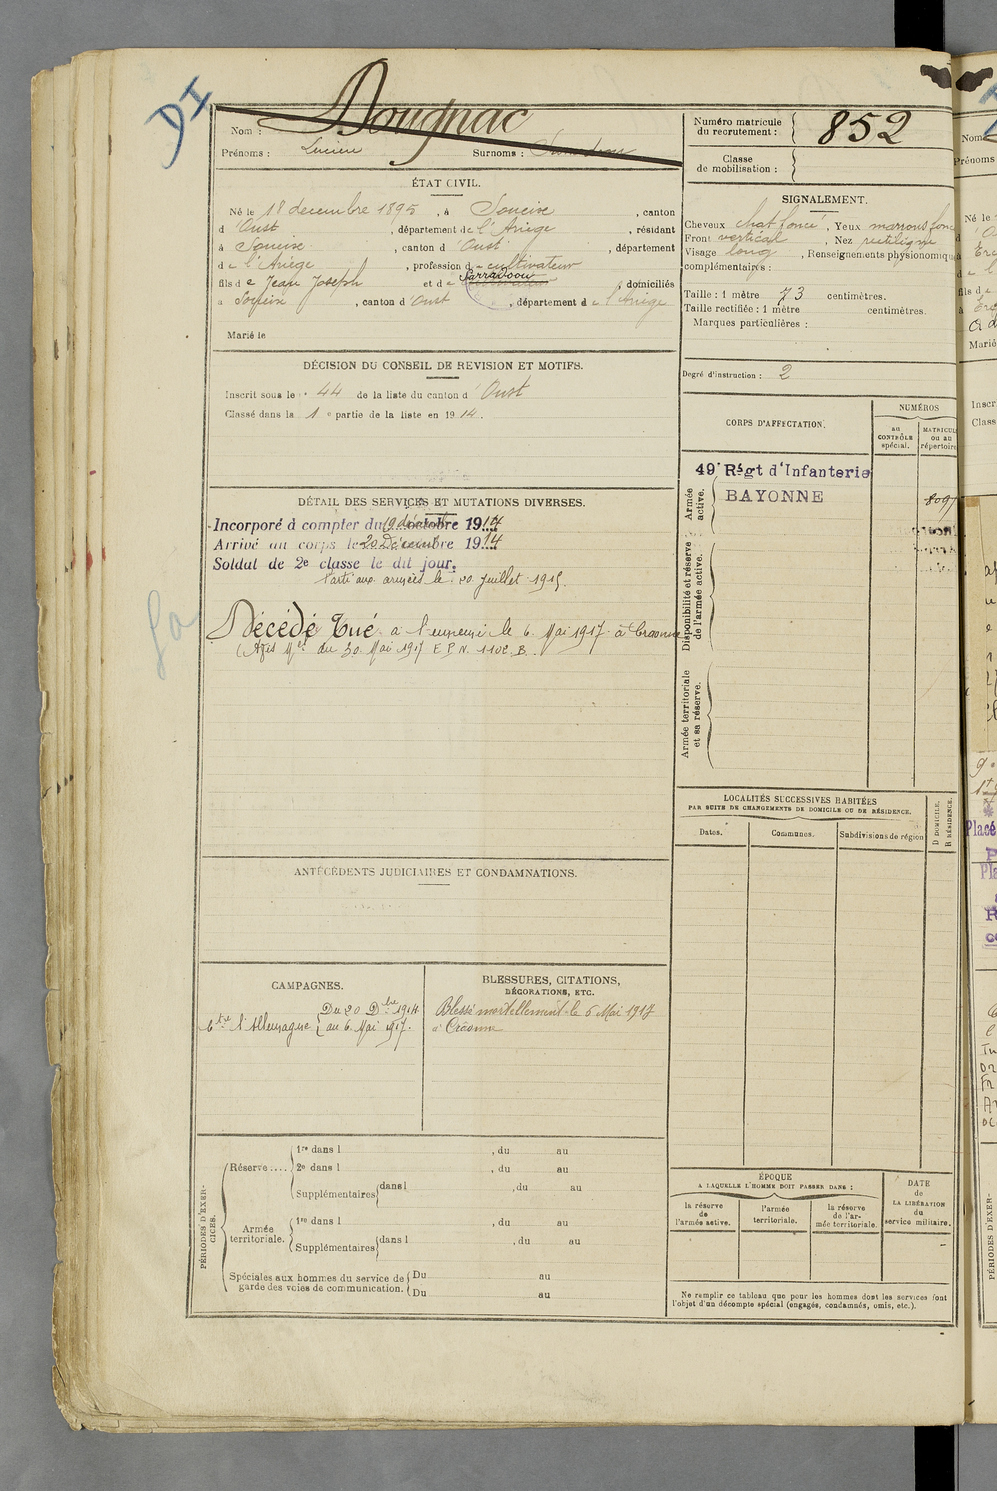 DI
Dougnac
Nom :
Prénoms : Lucien Surnoms :
Numéro matricule
du recrutement : 852
Classe
de mobilisation :
ÉTAT CIVIL.
Né le 18 decembre 1895, à Soueix, canton
d'Oust, département de l'Ariège, résidant
à Soueix, canton d'Oust, département
de l'Ariège, profession de cultivateur
fils de Jean Joseph et de domiciliés
à Soueix, canton d'Oust, département de l'Ariège
Marié le
SIGNALEMENT.
Cheveux chat foncé, Yeux marrons fonc
Front vertical, Nez rectiligne
Visage long, Renseignements physionomiqu
complémentaires :
Taille : 1 mètre 73 centimètres.
Taille rectifiée : 1 mètre centimètres.
Marques particulières :
Degré d'instruction : 2
DÉCISION DU CONSEIL DE REVISION ET MOTIFS.
Inscrit sous le n° 44 de la liste du canton d'Oust
Classé dans la 1e partie de la liste en 1914.
CORPS D'AFFECTATION.
NUMÉROS
au
CONTRÔLE
spécial.
MATRICUL
ou au
répertoire
Armée
active.
49e Régt d'Infanterie
BAYONNE
8097
Disponibilité et réserve
de l'armée active.
Armée territoriale
et sa réserve.
DÉTAIL DES SERVICES ET MUTATIONS DIVERSES.
Incorporé à compter du 19 décembre 1914
Arrivé au corps le 20 Décembre 1914
Soldat de 2e classe le dit jour.
Parti aux armées le 20 Juillet 1915.
Décédé Tué à l'ennemi le 6 Mai 1917 à Craonne
(Avis Mel du 30 Mai 1917 E.P.N. 1102.B.
LOCALITÉS SUCCESSIVES HABITÉES
PAR SUITE DE CHANGEMENTS DE DOMICILE OU DE RÉSIDENCE.
Dates.
Communes.
Subdivisions de région
D DOMICILE.
R RÉSIDENCE.
ANTÉCÉDENTS JUDICIAIRES ET CONDAMNATIONS.
CAMPAGNES.
Ctre l'Allemagne { Du 20 Dbre 1914
au 6 Mai 1917.
BLESSURES, CITATIONS,
DÉCORATIONS, ETC.
Blessé mortellement le 6 Mai 1917
à Craonne
PÉRIODES D'EXER-
CICES.
Réserve....
1re dans l , du au
2e dans l , du au
Supplémentaires dans l , du au
Armée
territoriale.
1re dans l , du au
Supplémentaires dans l , du au
Spéciales aux hommes du service de
garde des voies de communication.
Du au
Du au
ÉPOQUE
A LAQUELLE L'HOMME DOIT PASSER DANS :
la réserve
de
l'armée active.
l'armée
territoriale.
la réserve
de l'ar-
mée territoriale.
DATE
de
LA LIBÉRATION
du
service militaire.
Ne remplir ce tableau que pour les hommes dont les services font
l'objet d'un décompte spécial (engagés, condamnés, omis, etc.).